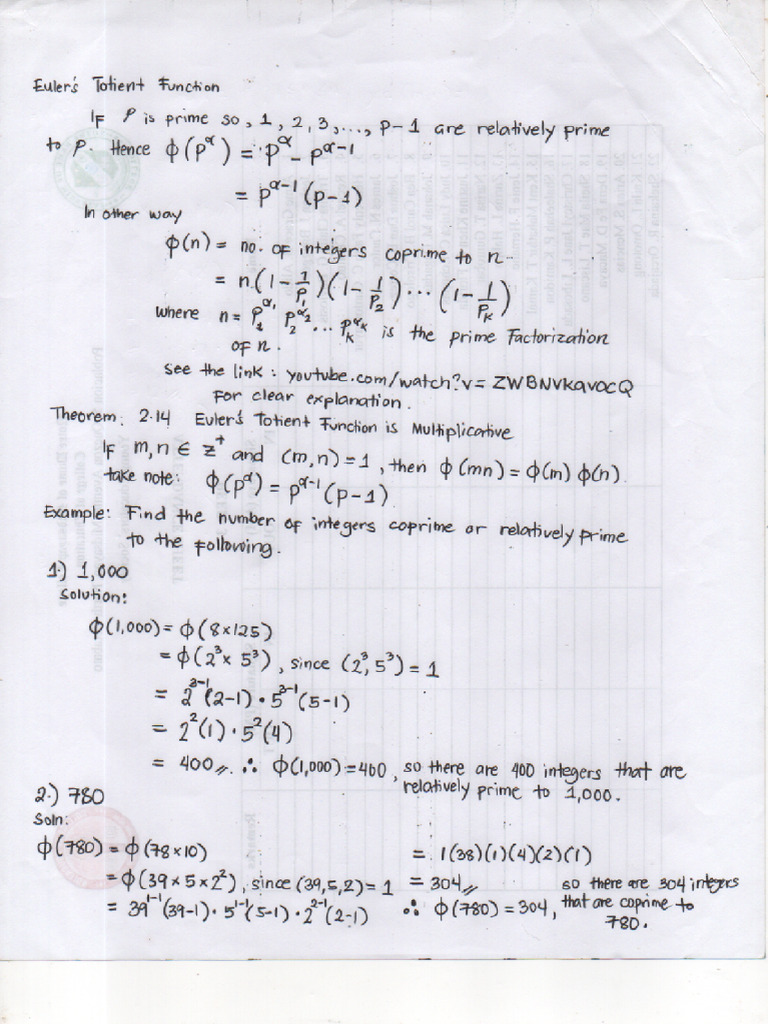 Euler's Totient Function
IF P is prime so, 1, 2, 3, ..., P-1 are relatively prime
to P. Hence ϕ(p^α) = p^α - p^(α-1)
= p^(α-1) (p-1)
In other way
ϕ(n) = no. of integers coprime to n.
= n(1 - 1/P₁)(1 - 1/P₂) ... (1 - 1/P_k)
where n = P₁^α₁ P₂^α₂ ... P_k^α_k is the prime Factorization
of n.
See the link: youtube.com/watch?v=ZWBNVKavocQ
For clear explanation.
Theorem: 2.14 Euler's Totient Function is Multiplicative
IF m,n ∈ Z⁺ and (m,n)=1, then ϕ(mn) = ϕ(m) ϕ(n).
take note: ϕ(p^α) = p^(α-1) (p-1)
Example: Find the number of integers coprime or relatively prime
to the following.
1.) 1,000
Solution:
ϕ(1,000) = ϕ(8×125)
= ϕ(2³ × 5³), since (2³, 5³) = 1
= 2³⁻¹(2-1) · 5³⁻¹(5-1)
= 2²(1) · 5²(4)
= 400 ∴ ϕ(1,000) = 400, so there are 400 integers that are
relatively prime to 1,000.
2.) 780
Soln:
ϕ(780) = ϕ(78×10)
= ϕ(39 × 5 × 2²), since (39,5,2) = 1
= 39¹⁻¹(39-1) · 5¹⁻¹(5-1) · 2²⁻¹(2-1)
= 1(38)(1)(4)(2)(1)
= 304
∴ ϕ(780) = 304, so there are 304 integers
that are coprime to
780.